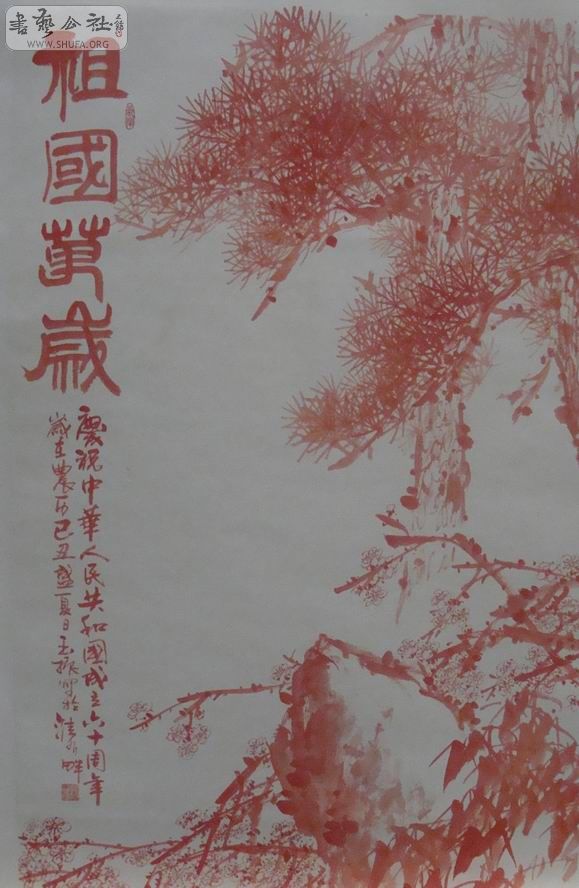 書藝公社
WWW.SHUFA.ORG
祖國萬歲
慶祝中華人民共和國成立六十周年
歲在農历己丑盛夏日玉振寫於清河畔